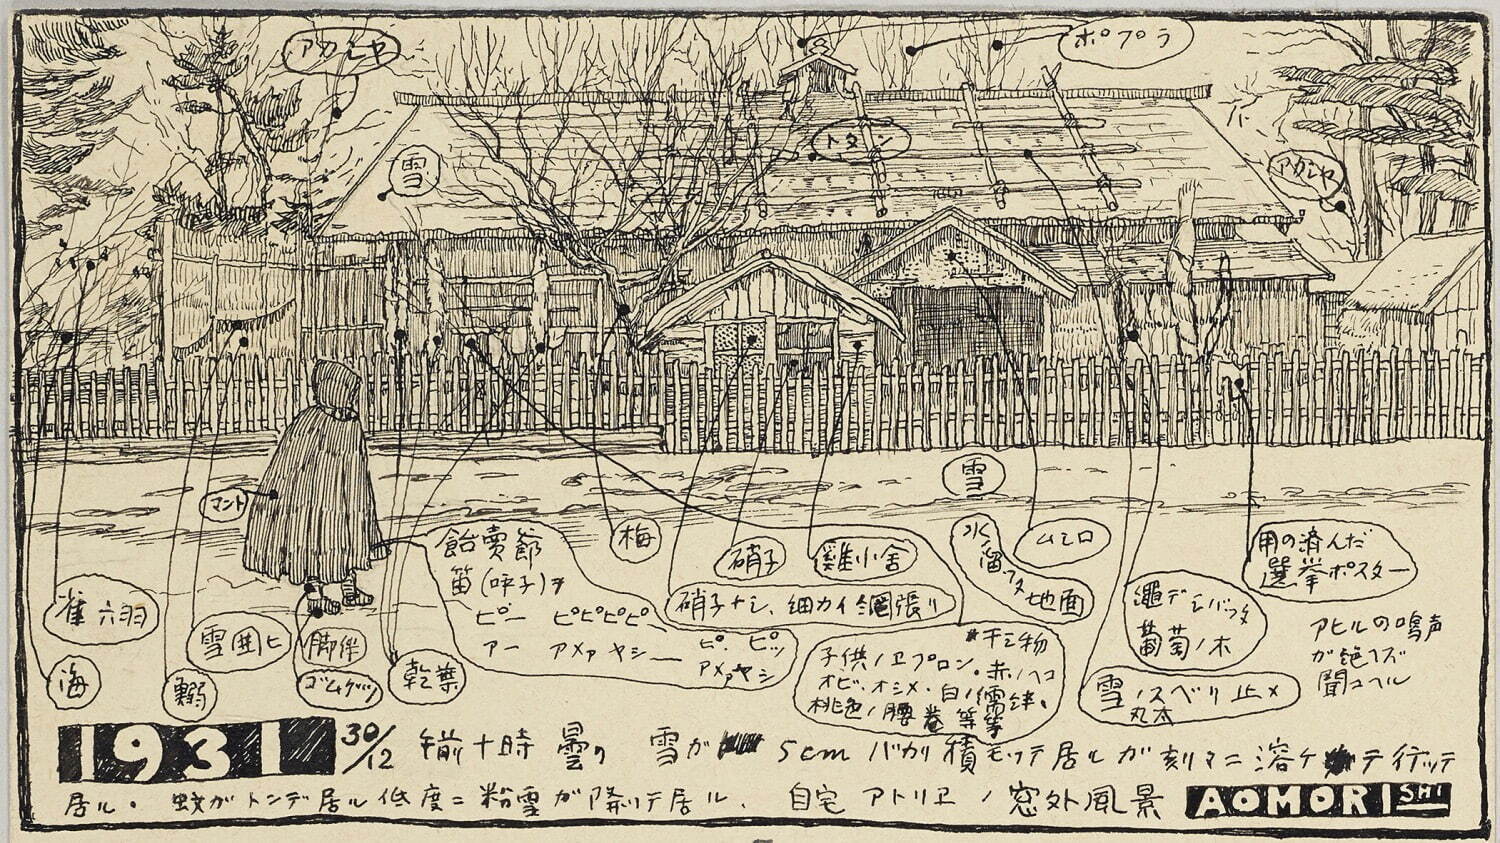 アカシヤ
ポプラ
トタン
雪
アカシヤ
マント
雪
飴賣爺
笛(呼子)ヲ
ピー ピピピピ
アー アメァヤシー
ピ、ピッ
アメァヤシ
梅
硝子
雞小舎
氷
溜ッタ
地面
ムシロ
用の済んだ
選挙ポスター
硝子ナシ、細カイ網張リ
雀六羽
雪囲ヒ
脚絆
ゴムグツ
乾葉
海
鰯
干シ物
子供ノヱプロン。赤ノヘコ
オビ、オシメ、白ノ襦袢。
桃色ノ腰巻等等
繩デシバッタ
葡萄ノ木
雪ノスベリ止メ
丸太
アヒルの鳴声
が絶ヘズ
聞コヘル
1931 30/12 午前十時 曇り 雪が 5cmバカリ積モッテ居ルが刻々ニ溶ケテ行ッテ
居ル。蚊がトンデ居ル低度ニ粉雪が降ッテ居ル、自宅アトリヱノ窓外風景 AOMORI SHI